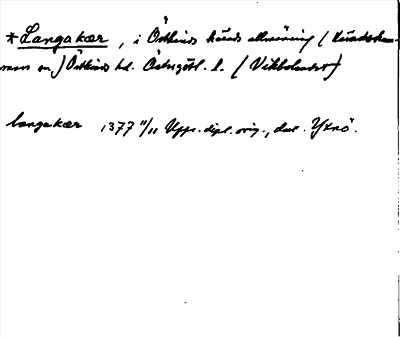 *Langakær, i Östkinds härads allmänning (Häradsham-
mars sn.) Östkinds hd. Östergötl. l. (Vikbolandet)
langakær 1377 11/11 Upps. dipl. orig., dat. Yxnö.